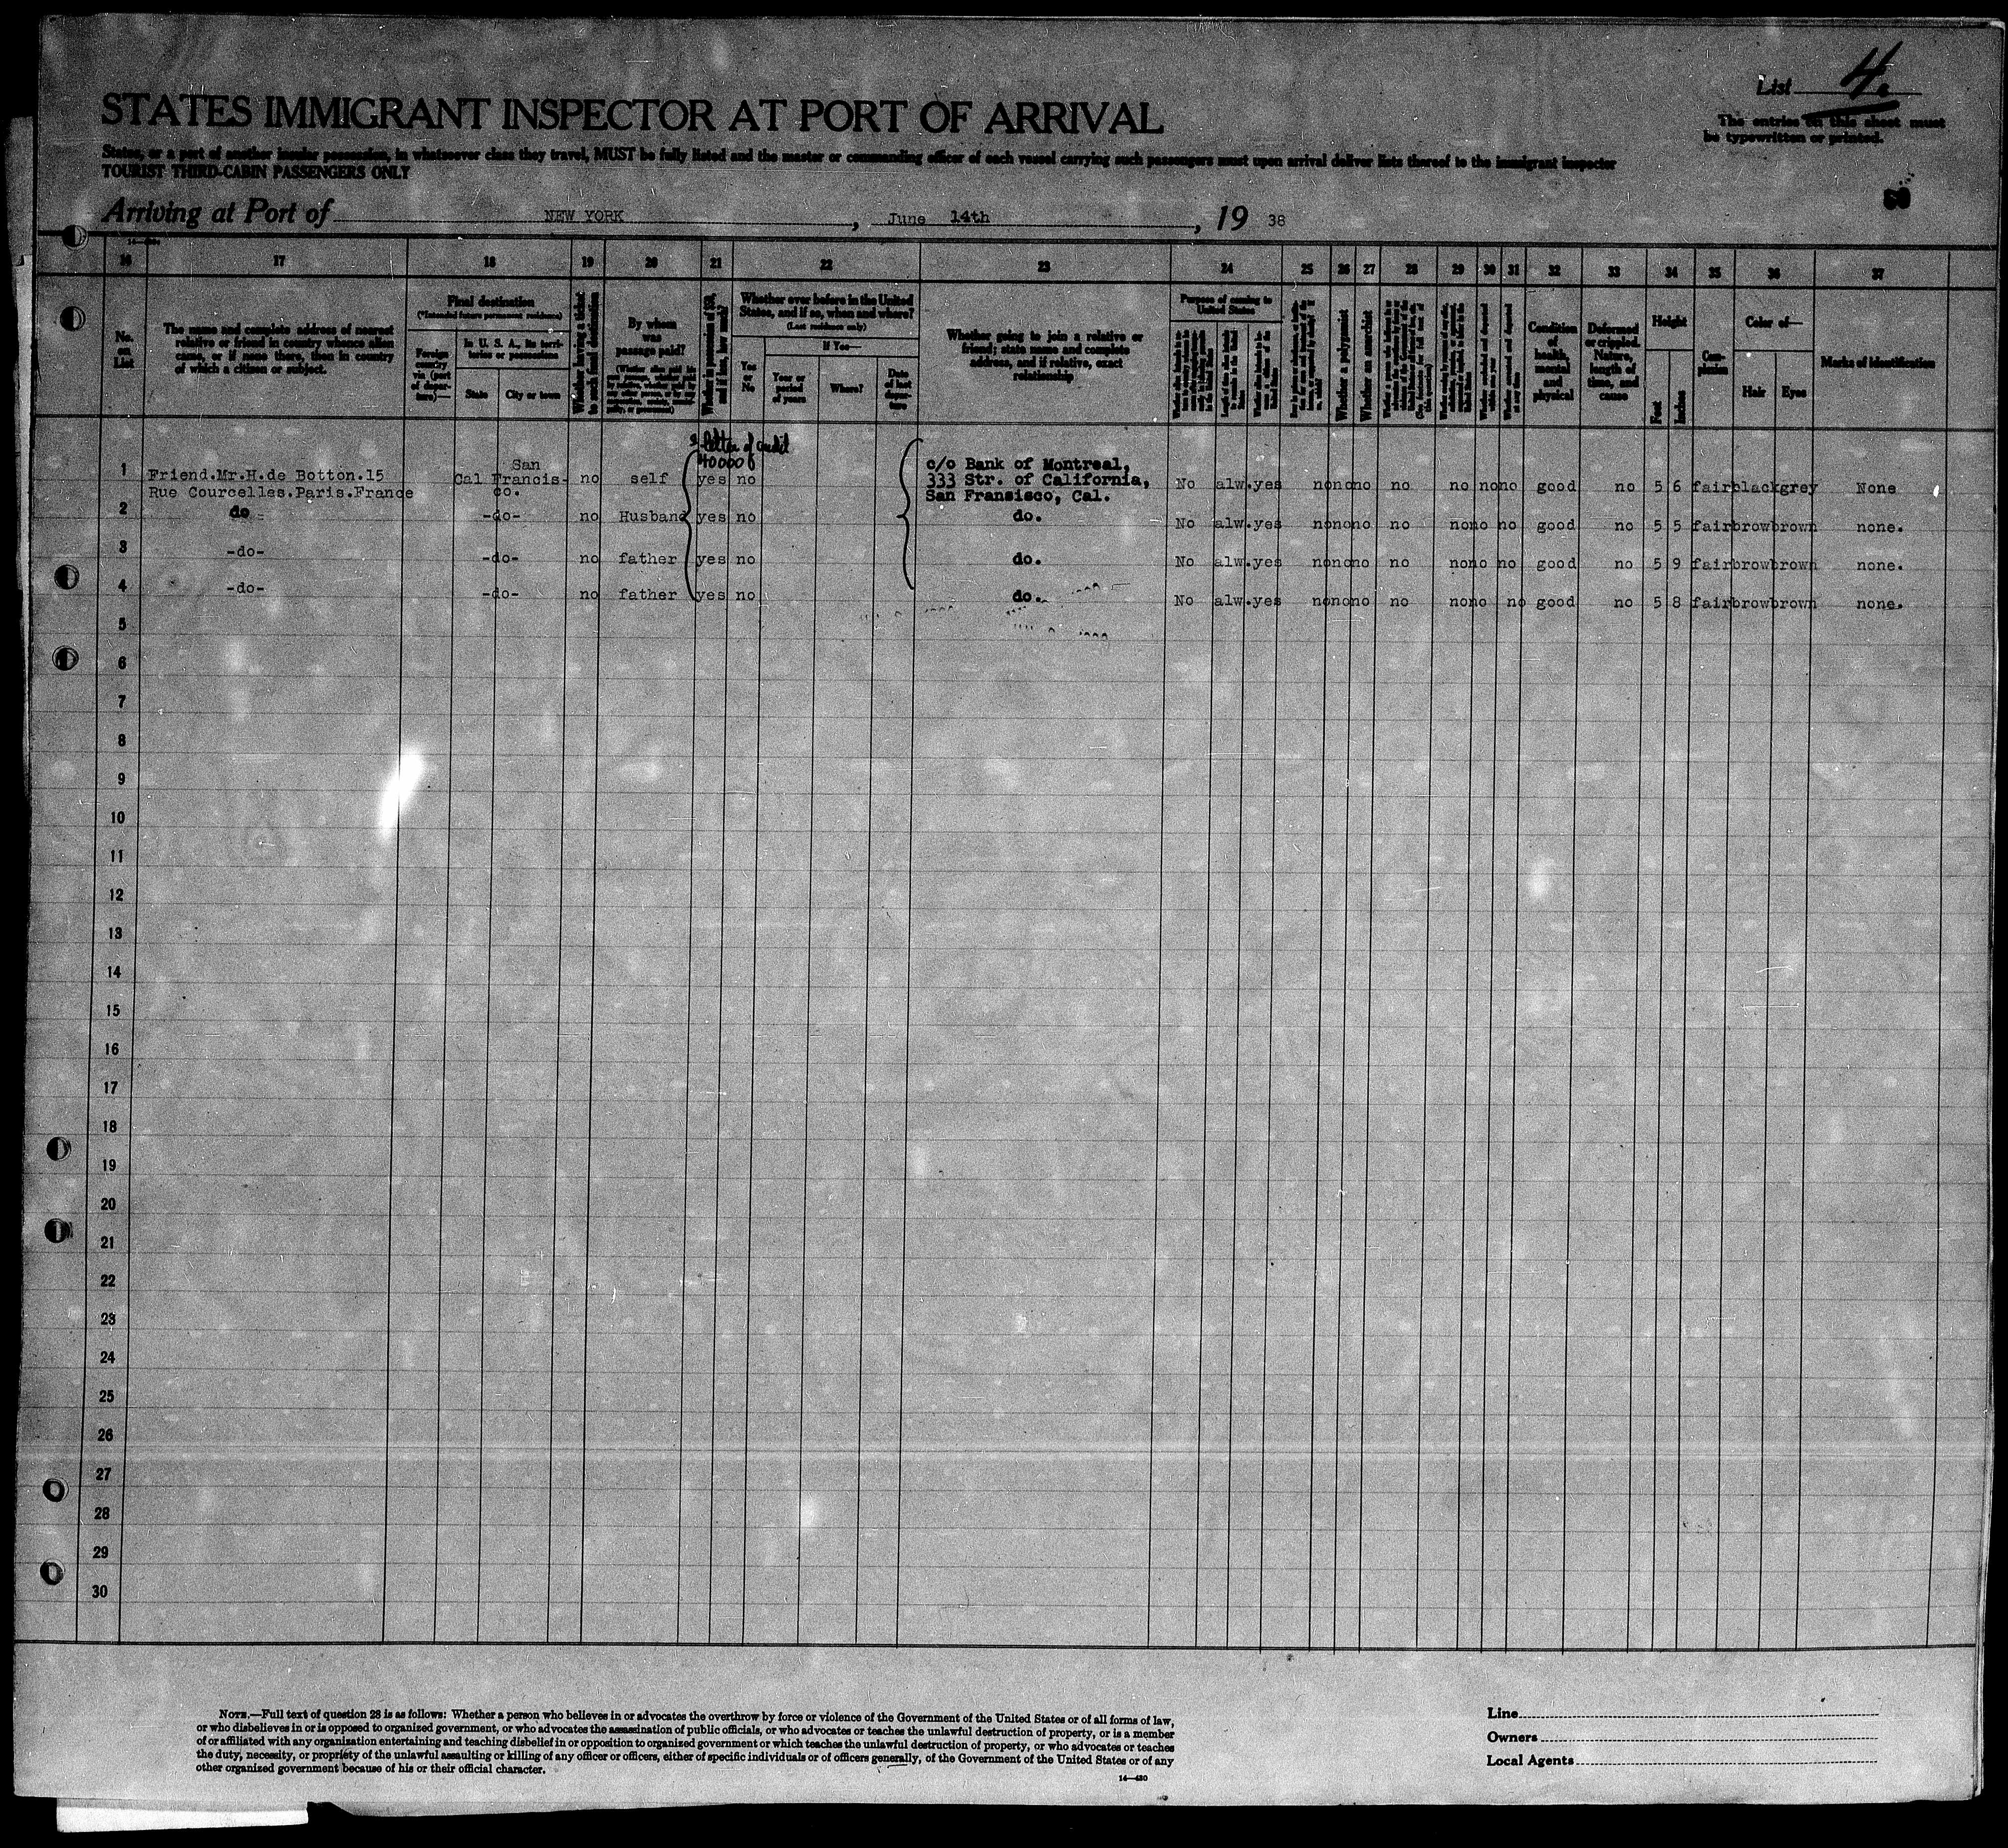 List 4.
The entries on this sheet must
be typewritten or printed.
STATES IMMIGRANT INSPECTOR AT PORT OF ARRIVAL
States, or a port of another insular possession, in whatsoever class they travel, MUST be fully listed and the master or commanding officer of each vessel carrying such passengers must upon arrival deliver lists thereof to the immigrant inspector
TOURIST THIRD-CABIN PASSENGERS ONLY
Arriving at Port of NEW YORK, June 14th, 19 38
16 17 18 19 20 21 22 23 24 25 26 27 28 29 30 31 32 33 34 35 36 37
No. on List
The name and complete address of nearest
relative or friend in country whence alien
came, or if none there, then in country
of which a citizen or subject.
Final destination
(*Intended future permanent residence)
Foreign country via (port of departure)—
In U. S. A., its territories or possessions
State
City or town
Whether having a ticket to such final destination
By whom was passage paid?
Whether in possession of $50, and if less, how much?
Whether ever before in the United
States, and if so, when and where?
(Last residence only)
Yes or No
If Yes—
Year or period of years
Where?
Date of last departure
Whether going to join a relative or
friend; state name and complete
address, and if relative, exact
relationship
Purpose of coming to
United States
Whether a polygamist
Whether an anarchist
Condition of health, mental and physical
Deformed or crippled. Nature, length of time, and cause
Height
Feet
Inches
Complexion
Color of—
Hair
Eyes
Marks of identification
letter of credit
40000
1 Friend.Mr.H.de Botton.15 Cal San Francis- no self yes no c/o Bank of Montreal, No alw. yes no no no no no no no good no 5 6 fair black grey None
Rue Courcelles.Paris.France co. 333 Str. of California,
San Fransisco, Cal.
2 do -do- no Husband yes no do. No alw. yes no no no no no no no good no 5 5 fair brow brown none.
3 -do- -do- no father yes no do. No alw. yes no no no no no no no good no 5 9 fair brow brown none.
4 -do- -do- no father yes no do. No alw. yes no no no no no no no good no 5 8 fair brow brown none.
5
6
7
8
9
10
11
12
13
14
15
16
17
18
19
20
21
22
23
24
25
26
27
28
29
30
NOTE.—Full text of question 28 is as follows: Whether a person who believes in or advocates the overthrow by force or violence of the Government of the United States or of all forms of law,
or who disbelieves in or is opposed to organized government, or who advocates the assassination of public officials, or who advocates or teaches the unlawful destruction of property, or is a member
of or affiliated with any organization entertaining and teaching disbelief in or opposition to organized government or which teaches the unlawful destruction of property, or who advocates or teaches
the duty, necessity, or propriety of the unlawful assaulting or killing of any officer or officers, either of specific individuals or of officers generally, of the Government of the United States or of any
other organized government because of his or their official character.
14—430
Line
Owners
Local Agents